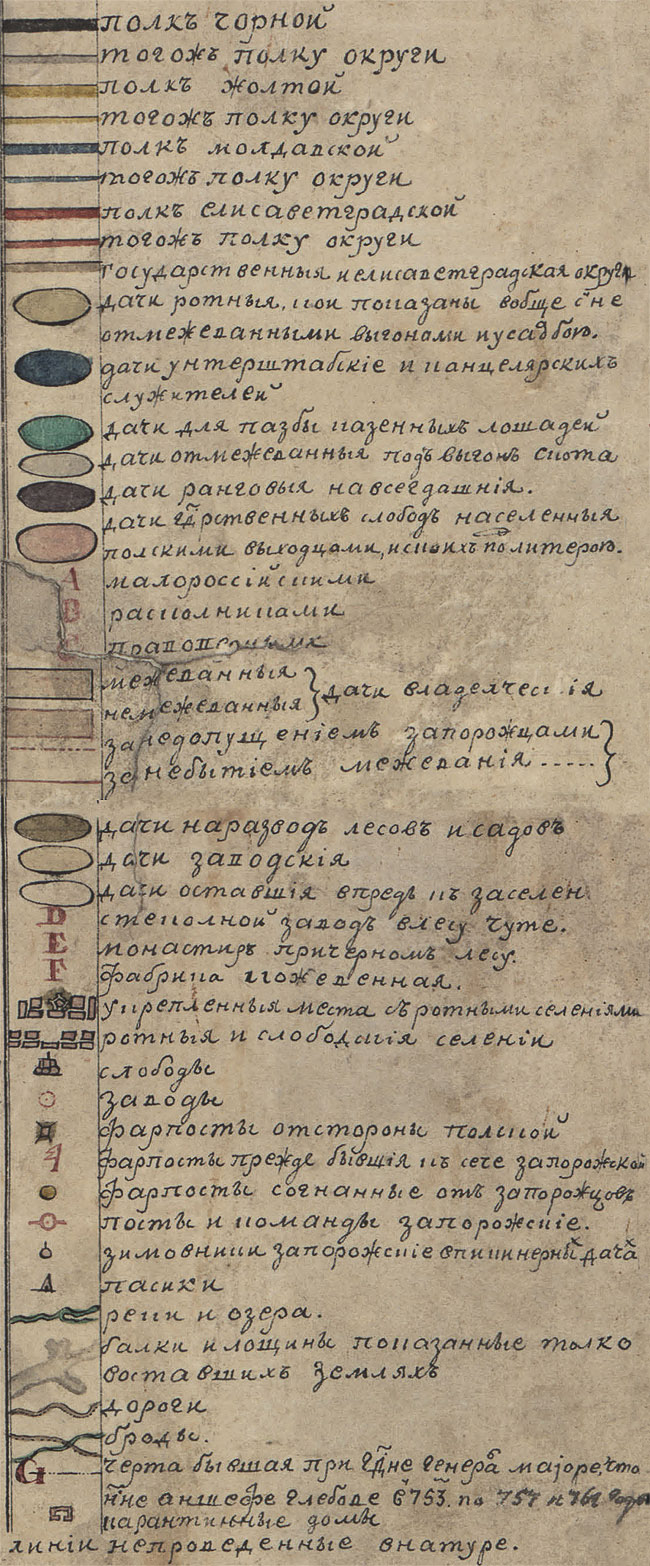 полкъ чорной
тогожъ полку округи
полкъ жолтой
тогожъ полку округи
полкъ молдавской
тогожъ полку округи
полкъ елисаветградской
тогожъ полку округи
государственныя и елисаветградская округи
дачи ротныя, кои показаны вобще с не
отмежеванными выгонами и усадбою.
дачи унтерштабскіе и канцелярскихъ
служителей
дачи для пазбы казенныхъ лошадей
дачи отмежеванныя подъ выгонъ скота
дачи ранговыя навсегдашнія.
дачи гдрственныхъ слободъ населенныя
полскими выходцами, по литерою.
A малороссійскими
B располниками
межеванныя
немежеванныя } дачи владелческія
за недопущеніемъ запорожцами
за небытіемъ межеванія ..... }
дачи наразводъ лесовъ и садовъ
дачи заводскія
дачи оставшія впредь къ заселен
D стеколной заводъ влесу чуте.
E монастирь причерномъ лесу.
F фабрика кожевенная.
укрепленныя места съ ротными селеніями
ротныя и слободскія селеніи
слободы
заводы
фарпосты отстороны полской
4 фарпосты прежде бывшія къ сече запорожской
фарпосты согнанные отъ запорожцовъ
посты и команды запорожскіе.
зимовники запорожскіе впикинерныхъ дачахъ
пасики
реки и озера.
балки и лощины показанные толко
воставшихъ земляхъ
дороги
броды.
G черта бывшая при гдне генерамаіоре, что
нне аншефе глебове в 1753. по 757 и 761 годы
карантинные домы
линіи непроведенные внатуре.